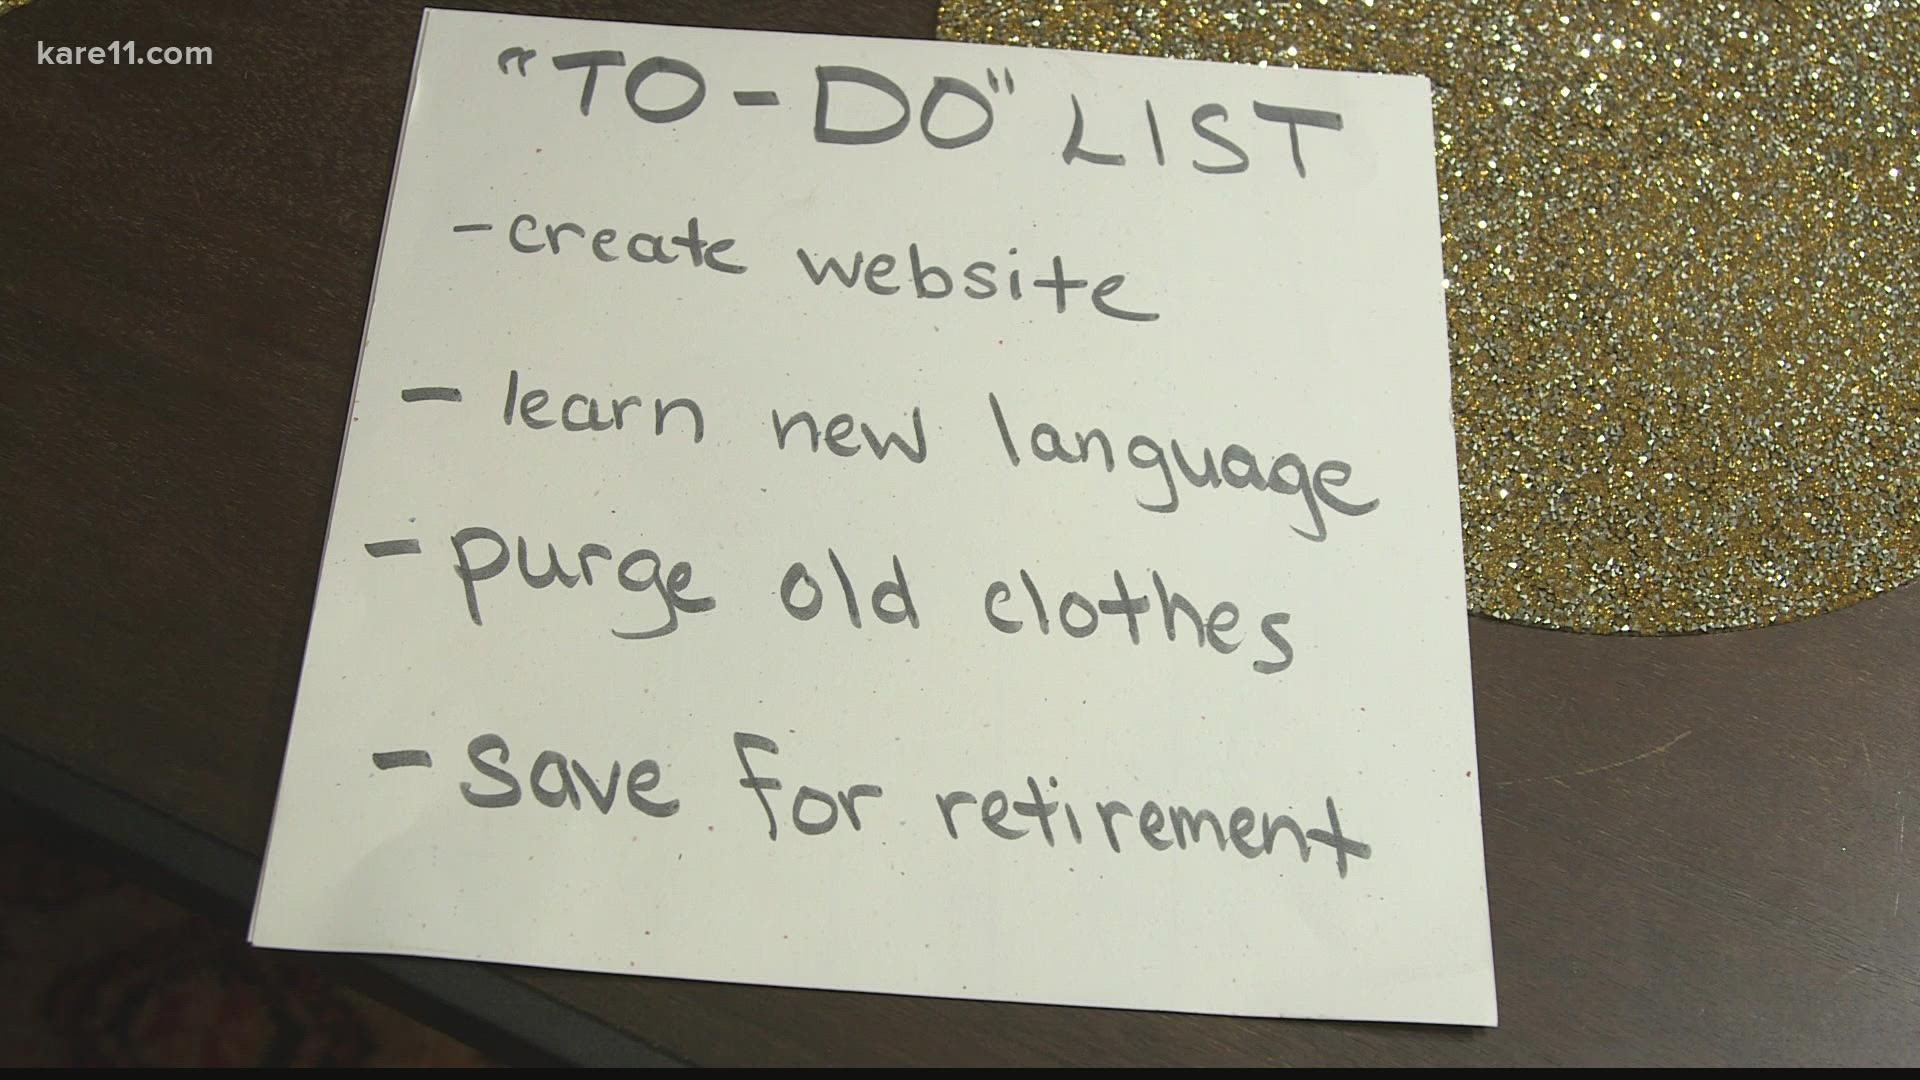 kare11.com
"TO-DO" LIST
- create website
- learn new language
- purge old clothes
- save for retirement